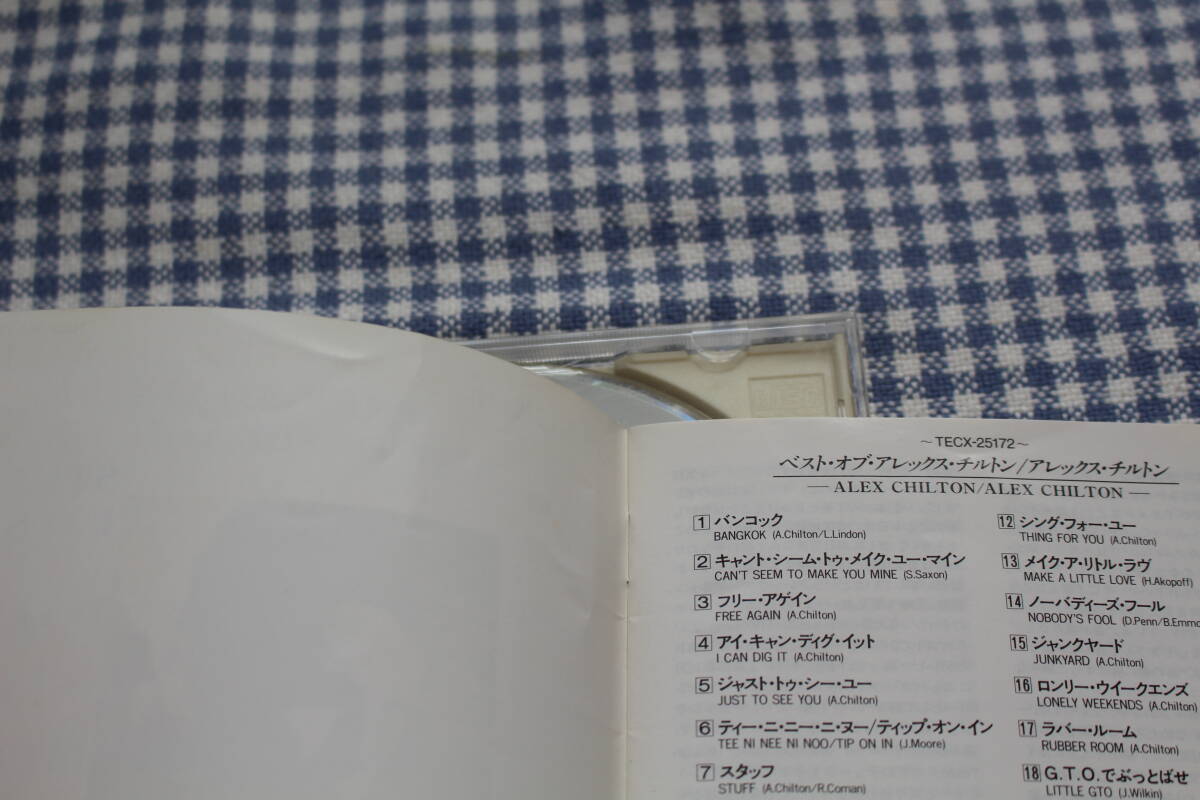 ~TECX-25172~
ベスト・オブ・アレックス・チルトン/アレックス・チルトン
— ALEX CHILTON/ALEX CHILTON —
1 バンコック
BANGKOK (A.Chilton/L.Lindon)
2 キャント・シーム・トゥ・メイク・ユー・マイン
CAN'T SEEM TO MAKE YOU MINE (S.Saxon)
3 フリー・アゲイン
FREE AGAIN (A.Chilton)
4 アイ・キャン・ディグ・イット
I CAN DIG IT (A.Chilton)
5 ジャスト・トゥ・シー・ユー
JUST TO SEE YOU (A.Chilton)
6 ティー・ニ・ニー・ニ・ヌー/ティップ・オン・イン
TEE NI NEE NI NOO/TIP ON IN (J.Moore)
7 スタッフ
STUFF (A.Chilton/R.Coman)
12 シング・フォー・ユー
THING FOR YOU (A.Chilton)
13 メイク・ア・リトル・ラヴ
MAKE A LITTLE LOVE (H.Akopoff)
14 ノーバディーズ・フール
NOBODY'S FOOL (D.Penn/B.Emmo
15 ジャンクヤード
JUNKYARD (A.Chilton)
16 ロンリー・ウイークエンズ
LONELY WEEKENDS (A.Chilton)
17 ラバー・ルーム
RUBBER ROOM (A.Chilton)
18 G.T.O.でぶっとばせ
LITTLE GTO (J.Wilkin)